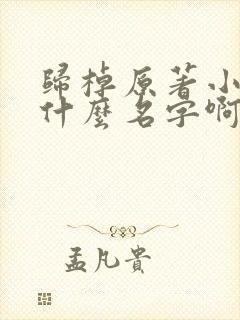 歸棹原著小
什麼名字啊
孟凡貴